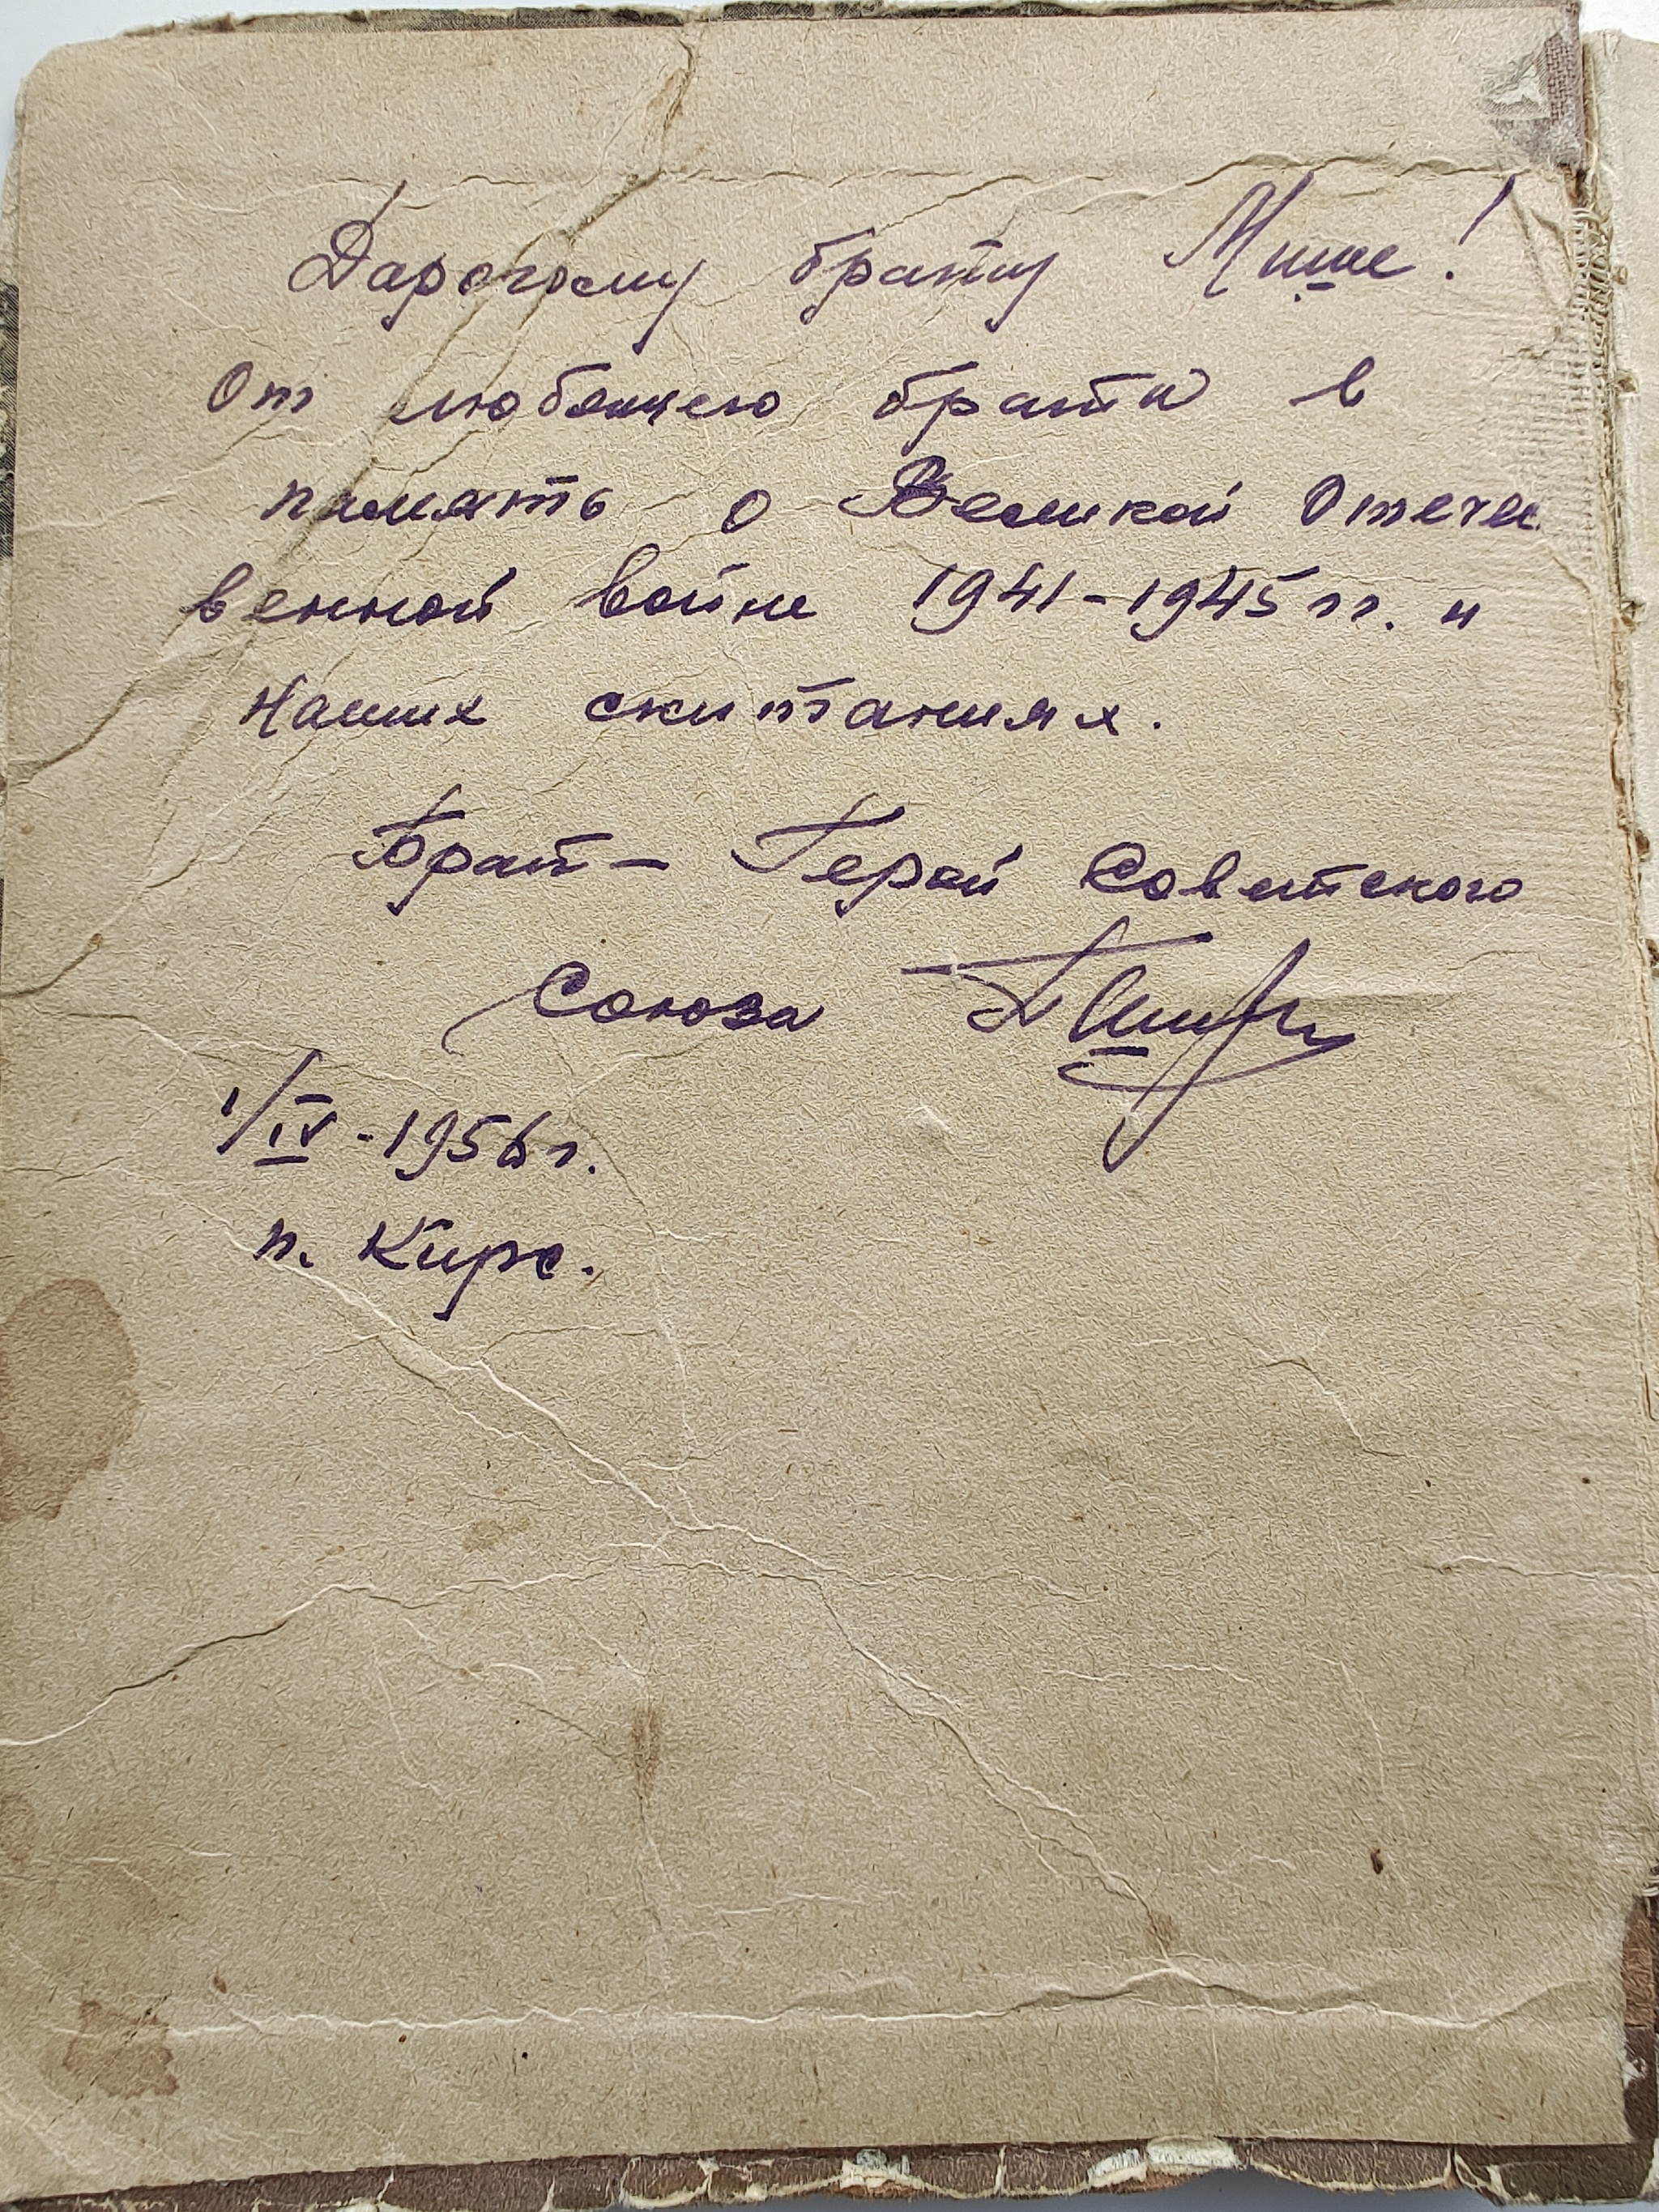 Дарогому брату Мише!
От любящего брата в
память о Великой Отечес
венной войне 1941-1945 гг. и
наших скитаниях.
Брат- Герой Советского
Союза
1/IV-1956 г.
п. Кирс.